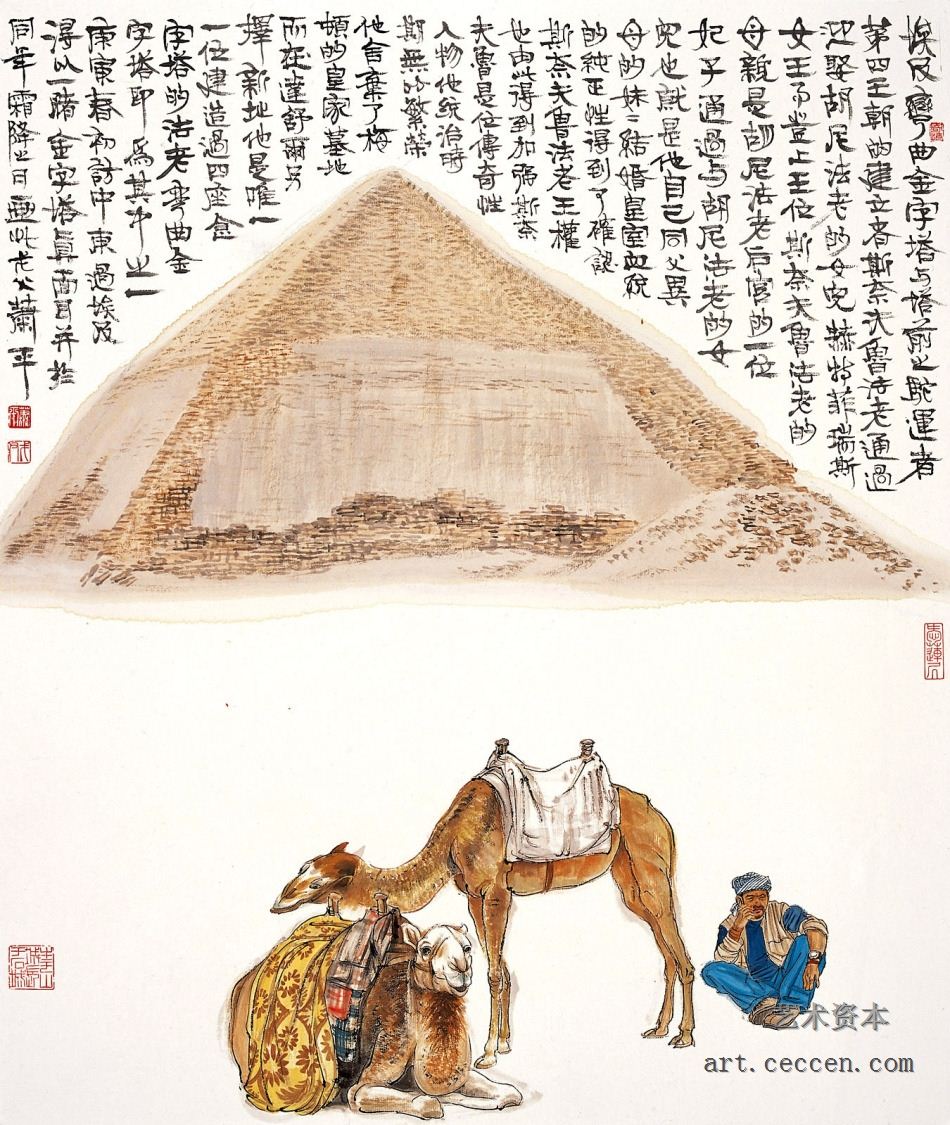 埃及彎曲金字塔与塔前之駝運者
第四王朝的建立者斯奈夫魯法老通過
迎娶胡尼法老的女兒赫特菲瑞斯
女王而登上王位斯奈夫魯法老的
母親是胡尼法老后宫的一位
妃子通過与胡尼法老的女
兒也就是他自己同父異
母的妹々結婚皇室血統
的純正性得到了確認
斯奈夫魯法老王權
也由此得到加强斯奈
夫魯是位傳奇性
人物他統治時
期無比繁榮
他舍棄了梅
頓的皇家墓地
而在達舒爾另
擇新址他是唯一
一位建造過四座金
字塔的法老彎曲金
字塔即為其中之一
庚寅春初訪中東過埃及
得以一睹金字塔真面目并於
同年霜降之日画此戈父蕭平
艺术资本
art.ceccen.com